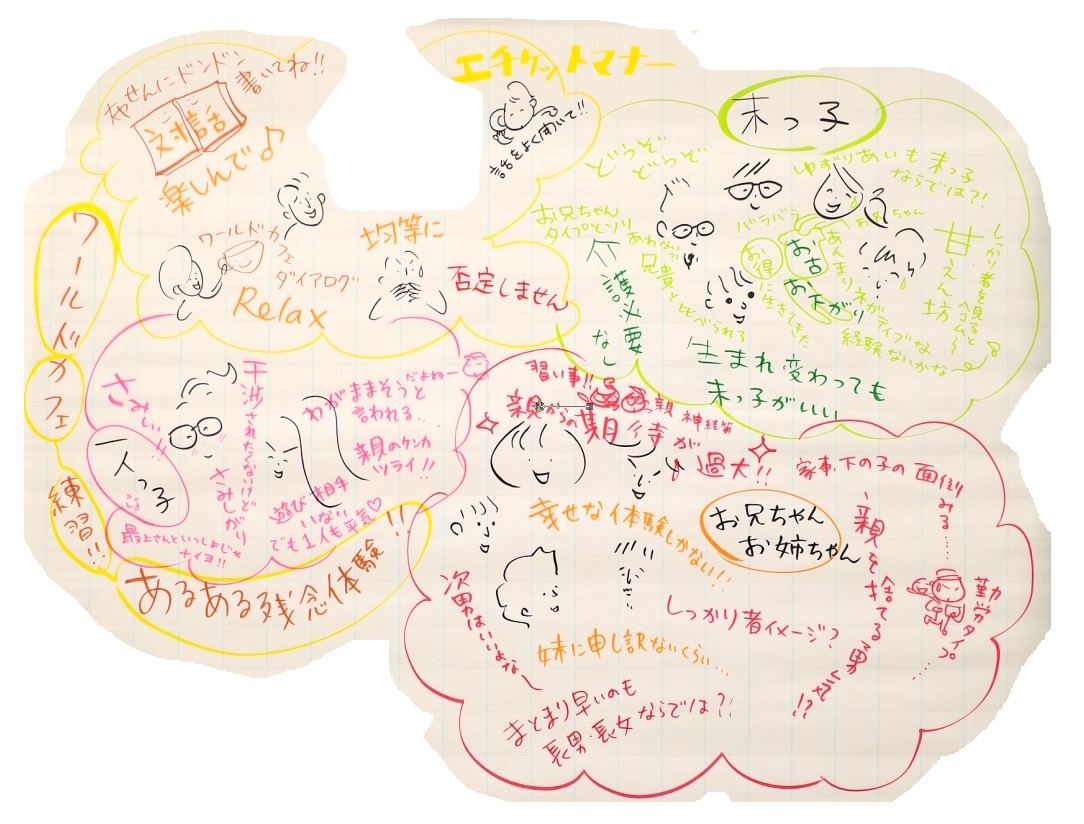 ワールド
カフェ
練習!!
あるある残念体験!!
エチケットマナー
話をよく聞いて!!
ドンドン
書いてね!!
対話
楽しんで♪
ワールドカ
フェ
ダイアログ
Relax
均等に
否定しません
末っ子
どうぞ
どうぞ
ゆずりあいも末っ子
ならでは?!
お兄ちゃん
タイプと
あわない
兄貴と
比べられる
介護必要
なし
バラバラ
お得
に生きてきた
お古
お下がり
あんまりネガティブな
経験ないかな〜
甘えん坊
しっかり者を見ると
生まれ変わっても
末っ子がいい
一人っ子
さみしぃ
干渉されたくないけど
さみしがり
わがままそうと
だよねー
言われる..
親のケンカ
ツライ!!
遊び相手
いない
でも1人も平気♡
最上さんといっしょじゃ
ナイヨ!!
お兄ちゃん
お姉ちゃん
習い事!!
親からの期待が
過大!!
親
神経質
家事、下の子の面倒
みる……
幸せな体験しかない!!
親を捨てる男
!?
勤労タイプ
しっかり者イメージ?
次男はいいよなー
妹に申し訳ないくらい…
まとまり早いのも
長男・長女ならでは?!